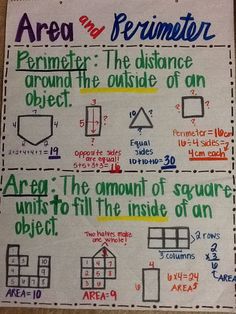 Area and Perimeter
Perimeter: The distance
around the outside of an
object.
Equal
sides
10+10+10=30
opposite sides
are equal!
5+3+5+3=16
Perimeter=16cm
16÷4 sides=
4cm each
?
Area: The amount of square
units to fill the inside of an
object.
Two halves make
one whole!
2 rows
3 columns
2
x 3
6
AREA
AREA=10
AREA=9
6x4=24
AREA
6
4